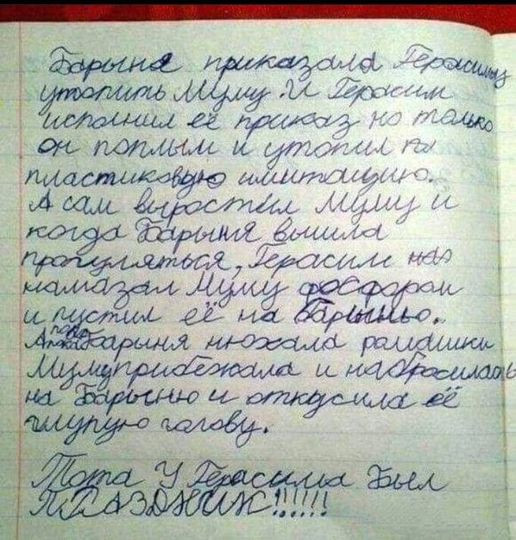 Барыня приказала Герасиму
утопить Муму. И Герасим
исполнил её приказ но только
он поплыл и утопил
пластиковую имитацию.
А сам выростил Муму и
когда Барыня вышла
прогуляться, Герасим
намазал Муму фосфором
и пустил её на Барынью.
пока Барыня нюхала ромашки
Муму прибежала и набросилась
на Барыню и откусила её
глупую голову.
Тота У Герасима Был
ПРАЗДНИК!!!!!!